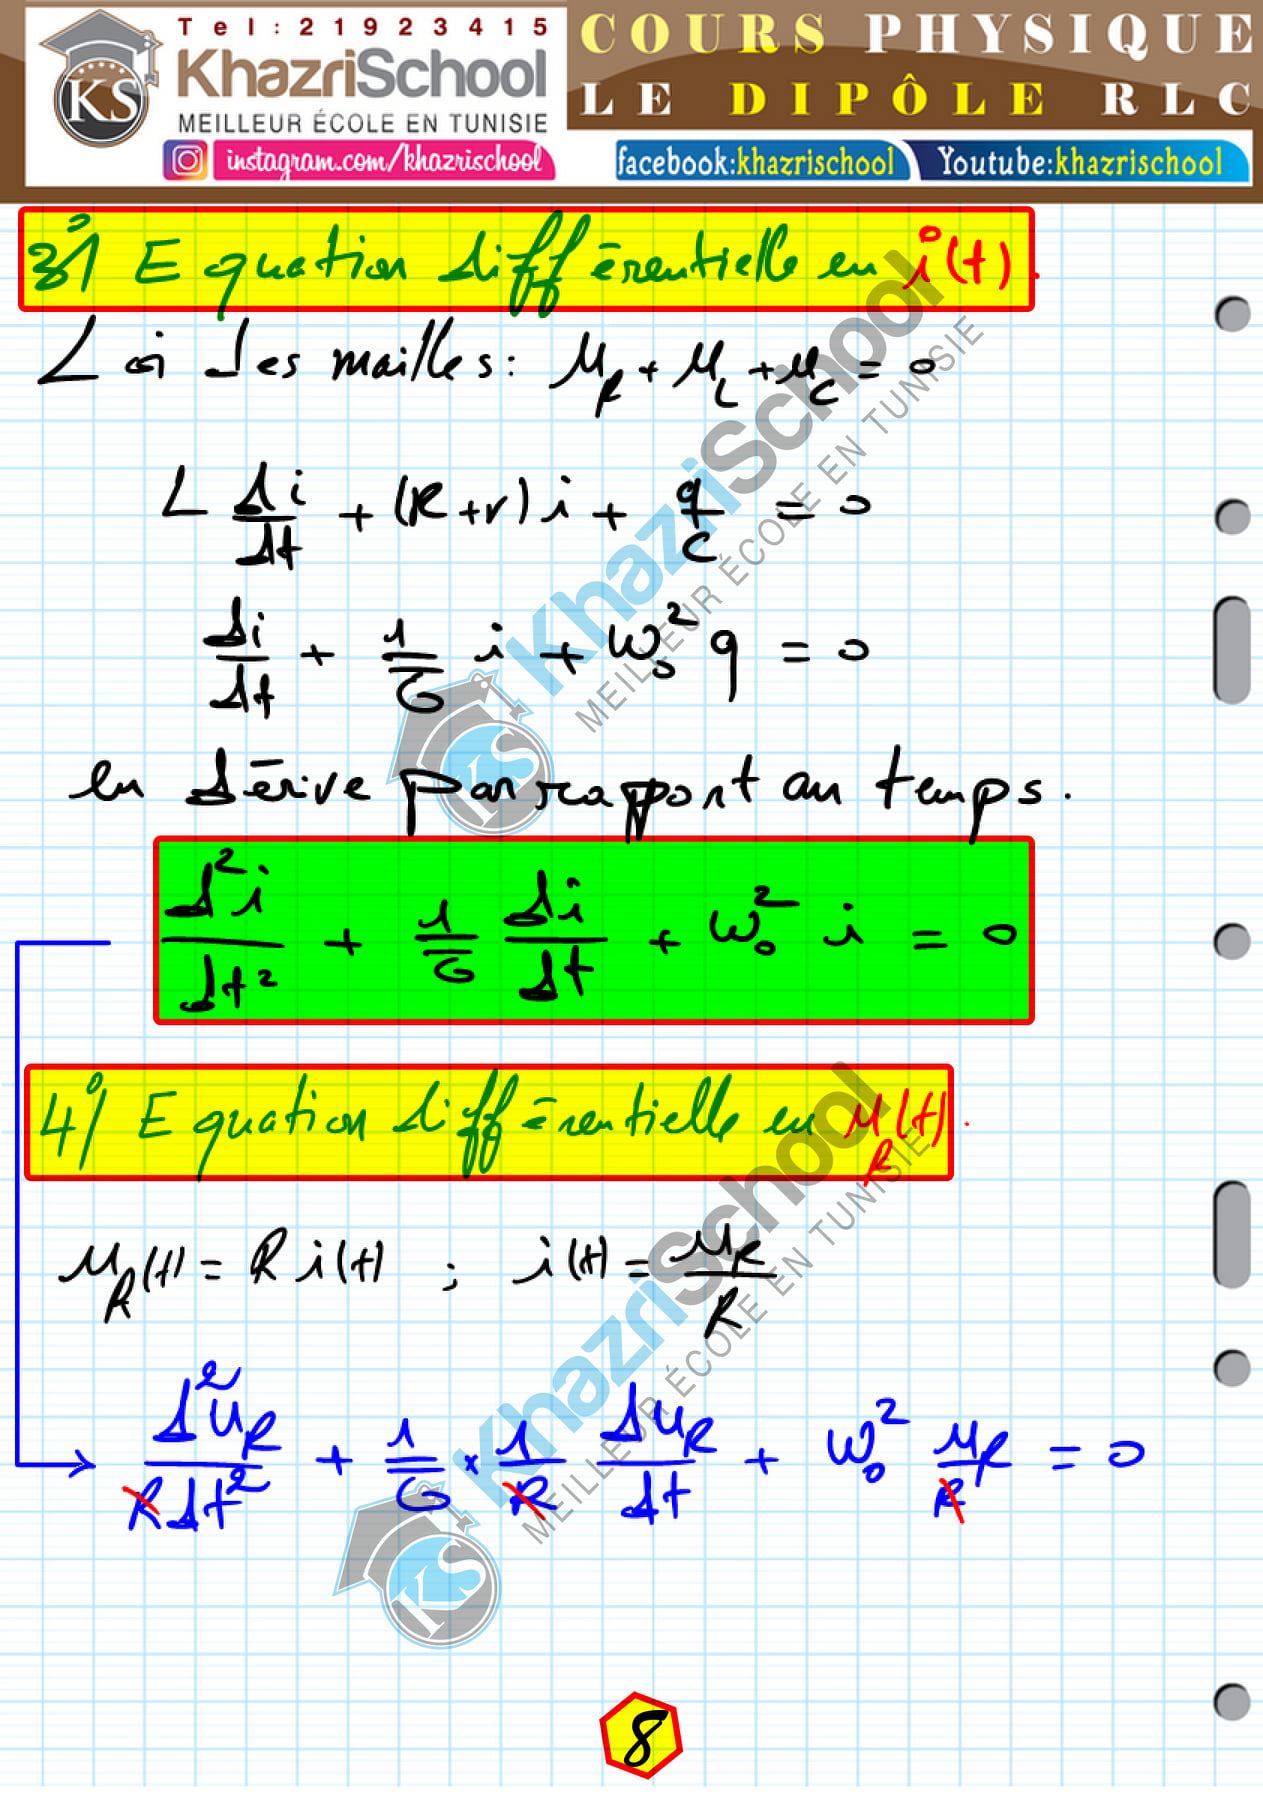 Tel:21923415
KhazriSchool
MEILLEUR ÉCOLE EN TUNISIE
instagram.com/khazrischool
COURS PHYSIQUE
LE DIPÔLE RLC
facebook:khazrischool
Youtube:khazrischool
3°/ Equation différentielle en i(t).
Loi des mailles: u_R + u_L + u_C = 0
L di/dt + (R+r) i + q/C = 0
di/dt + 1/τ i + ω₀² q = 0
en dérive par rapport au temps.
d²i/dt² + 1/τ di/dt + ω₀² i = 0
4°/ Equation différentielle en u_R(t).
u_R(t) = R i(t) ; i(t) = u_R/R
d²u_R/R dt² + 1/τ × 1/R du_R/dt + ω₀² u_R/R = 0
KhazriSchool
MEILLEUR ÉCOLE EN TUNISIE
KS
KhazriSchool
MEILLEUR ÉCOLE EN TUNISIE
KS
KS
8